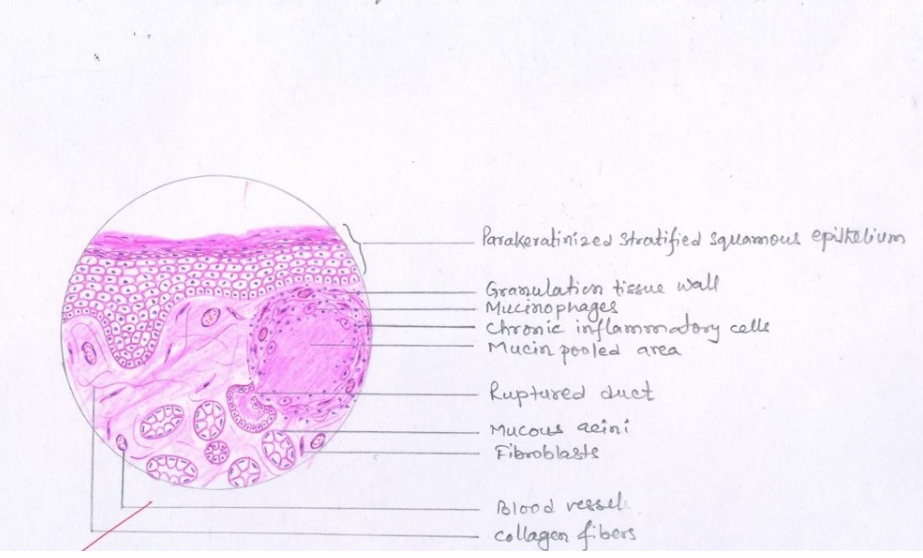 Parakeratinized stratified squamous epithelium
Granulation tissue wall
Mucinophages
Chronic inflammatory cells
Mucin pooled area
Ruptured duct
Mucous acini
Fibroblasts
Blood vessel
collagen fibers